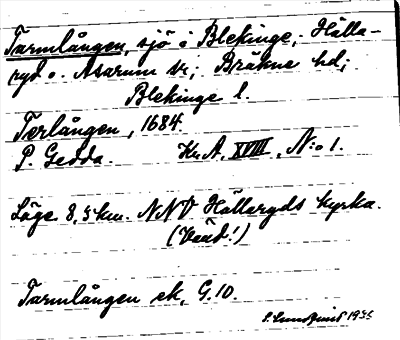 Tarmlången, sjö i Blekinge, Hälla-
ryd o. Asarum sr; Bräkne hd;
Blekinge l.
Terlången, 1684.
P. Gedda. Kr.A. XVIII, N:o 1.
Läge 8,5 km. NNV Hällaryds kyrka.
(Väud!)
Tarmlången ek, G.10.
S. Lundquist 1935